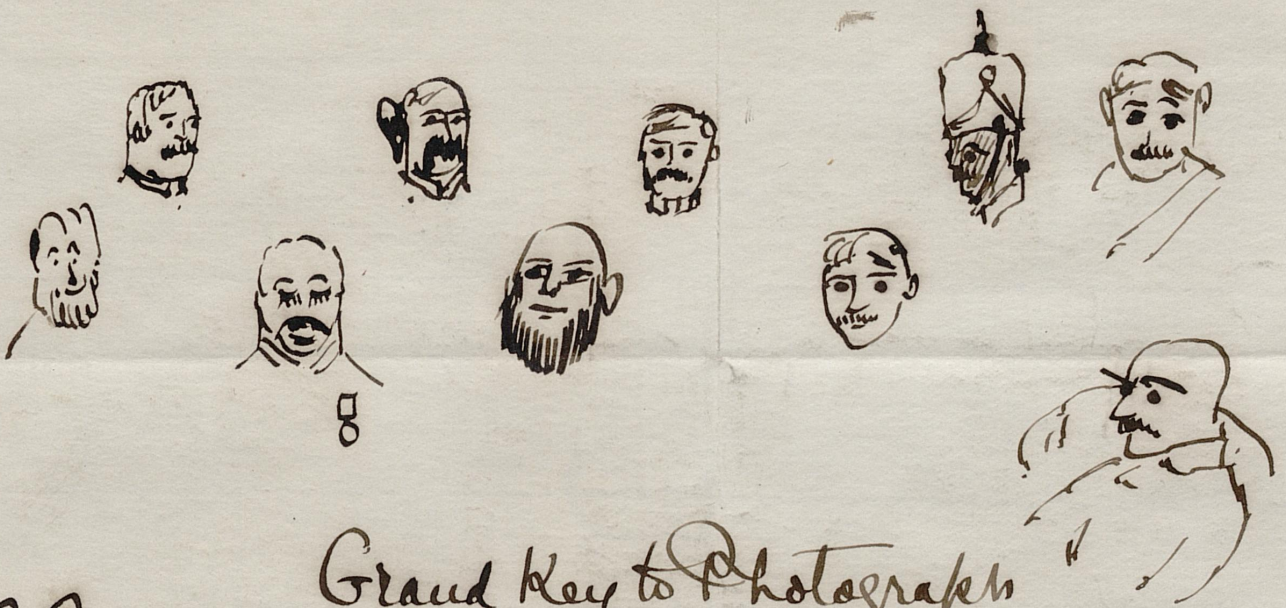 Grand Key to Photograph